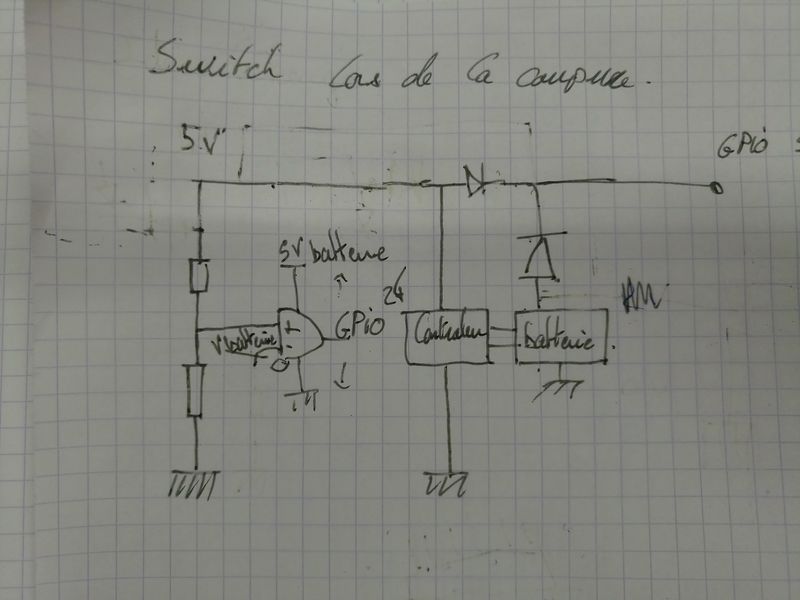 Switch lors de la coupure.
5V
GPio
5V batterie
24
GPiO
+
Vbatterie
-
Controleur
batterie